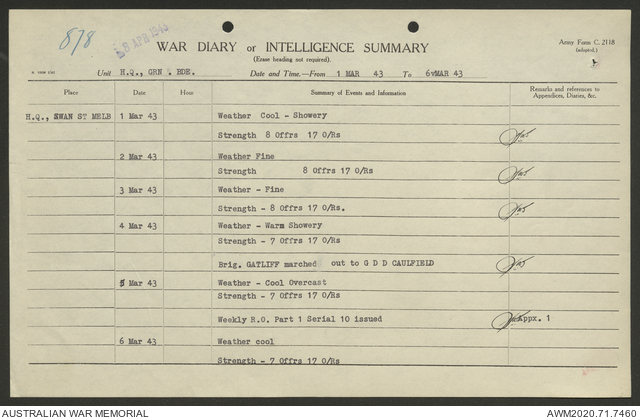 878
8 APR 1943
WAR DIARY or INTELLIGENCE SUMMARY
(Erase heading not required).
Army Form C. 2118
(adapted.)
Unit H.Q., GRN . BDE. Date and Time.—From 1 MAR 43 To 6 MAR 43
Place Date Hour Summary of Events and Information Remarks and references to
Appendices, Diaries, &c.
H.Q., SWAN ST MELB 1 Mar 43 Weather Cool - Showery
Strength 8 Offrs 17 O/Rs
2 Mar 43 Weather Fine
Strength 8 Offrs 17 O/Rs
3 Mar 43 Weather - Fine
Strength - 8 Offrs 17 O/Rs.
4 Mar 43 Weather - Warm Showery
Strength - 7 Offrs 17 O/Rs
Brig. GATLIFF marched out to G D D CAULFIELD
5 Mar 43 Weather - Cool Overcast
Strength - 7 Offrs 17 O/Rs
Weekly R.O. Part 1 Serial 10 issued Appx. 1
6 Mar 43 Weather cool
Strength - 7 Offrs 17 O/Rs
AUSTRALIAN WAR MEMORIAL AWM2020.71.7460